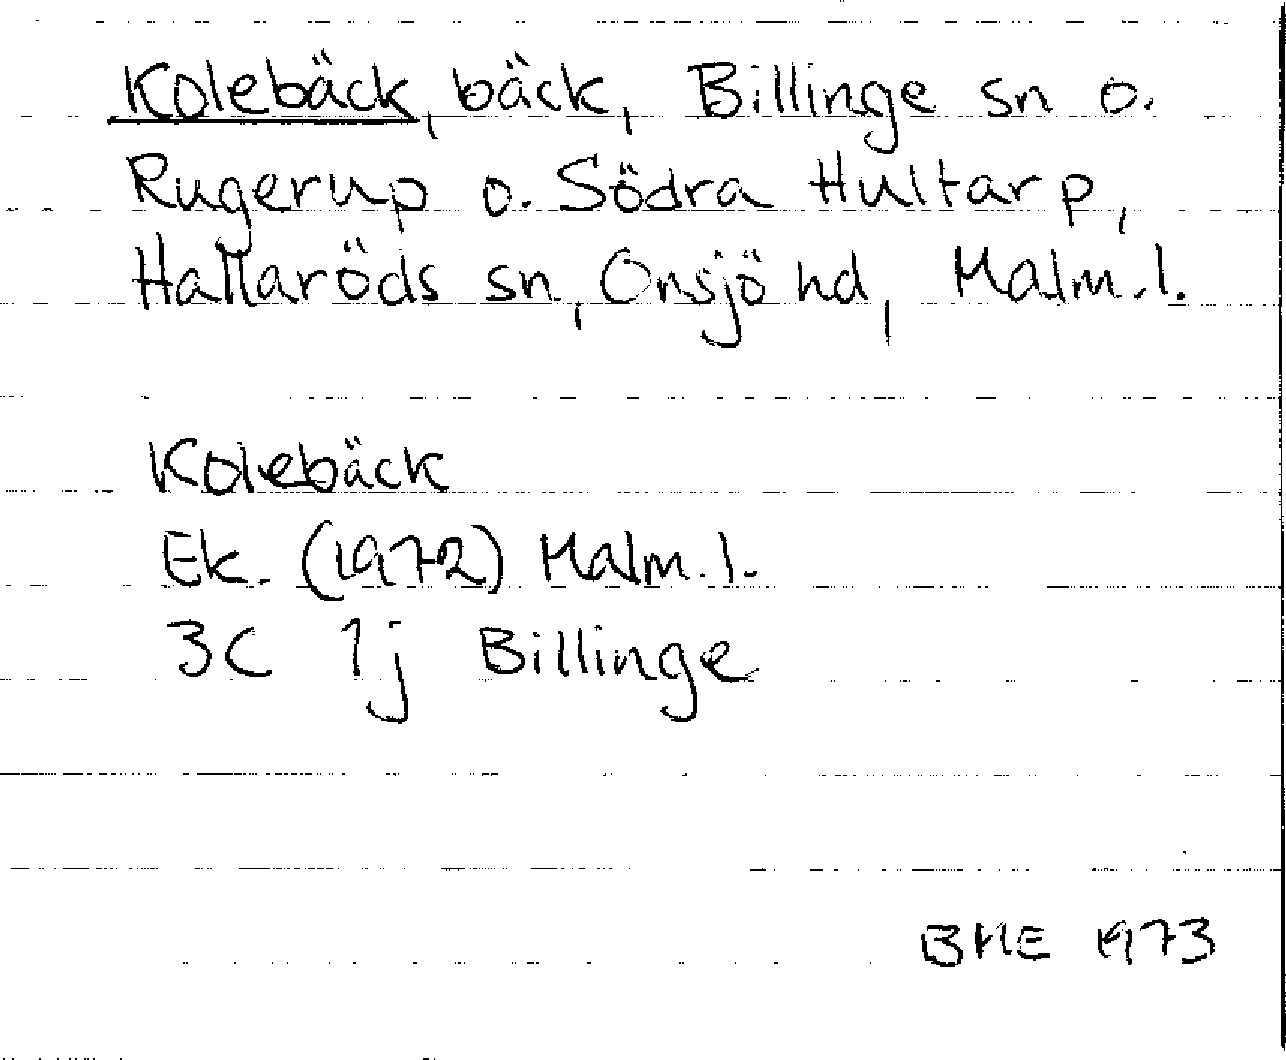 Kolebäck, bäck, Billinge sn o.
Rugerup o. Södra Hultarp,
Hallaröds sn, Onsjö hd, Malm.l.
Kolebäck
Ek. (1972) Malm.l.
3C 1j Billinge
BME 1973